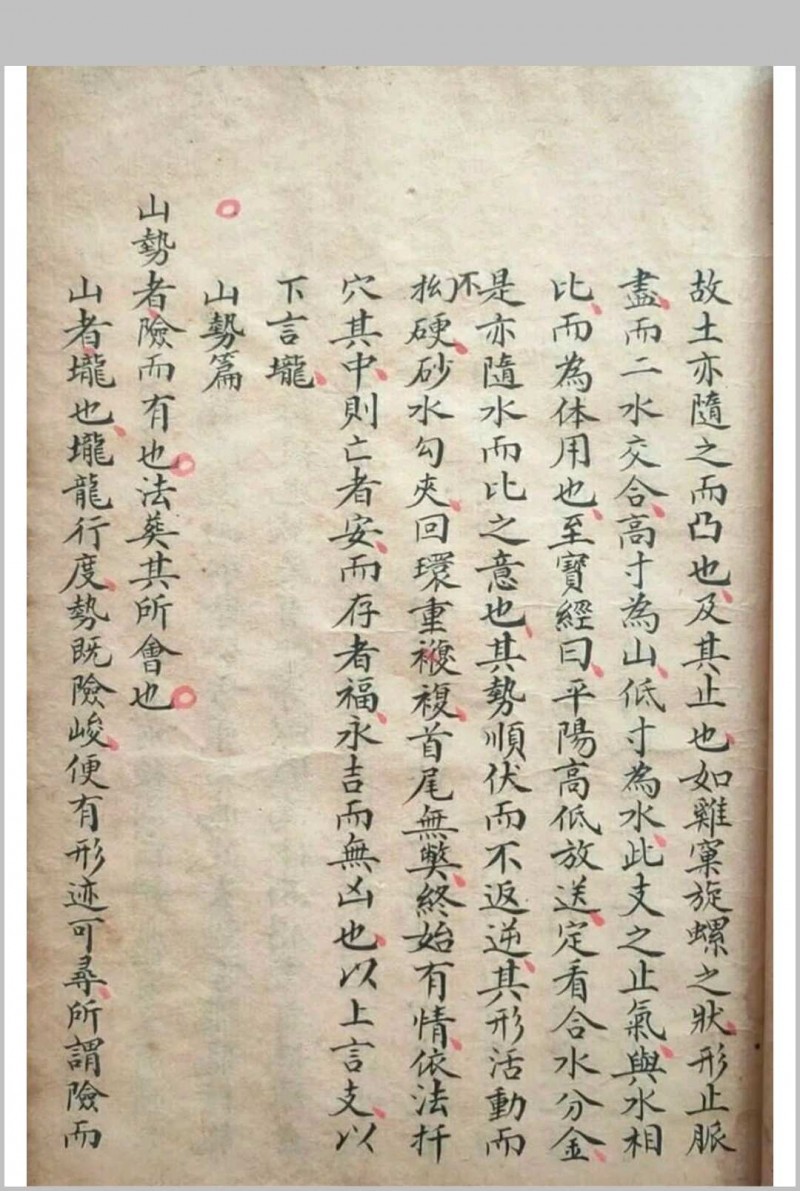 故土亦隨之而凸也及其止也如雞窠旋螺之狀形止脈
盡而二水交合高寸為山低寸為水此支之止氣與水相
比而為体用也至寶經曰平陽高低放送定看合水分金
是亦隨水而比之意也其勢順伏而不返逆其形活動而
不
硬砂水勾夾回環重複複首尾無獘終始有情依法扦
穴其中則亡者安而存者福永吉而無凶也以上言支以
下言壠
山勢篇
山勢者險而有也法葬其所會也
山者壠也壠龍行度勢既險峻便有形迹可尋所謂險而